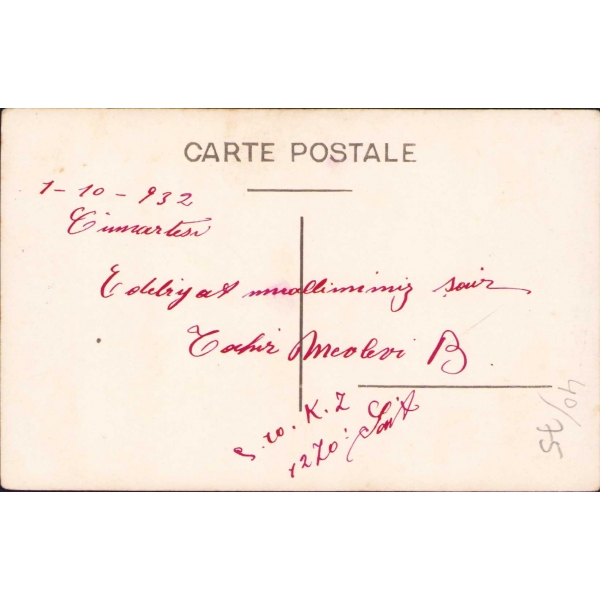 CARTE POSTALE
1-10-932
Cumartesi
Edebiyat muallimimiz şair
Tahir Mevlevi B
S. 10. K. Z
1270: Sait
40/75